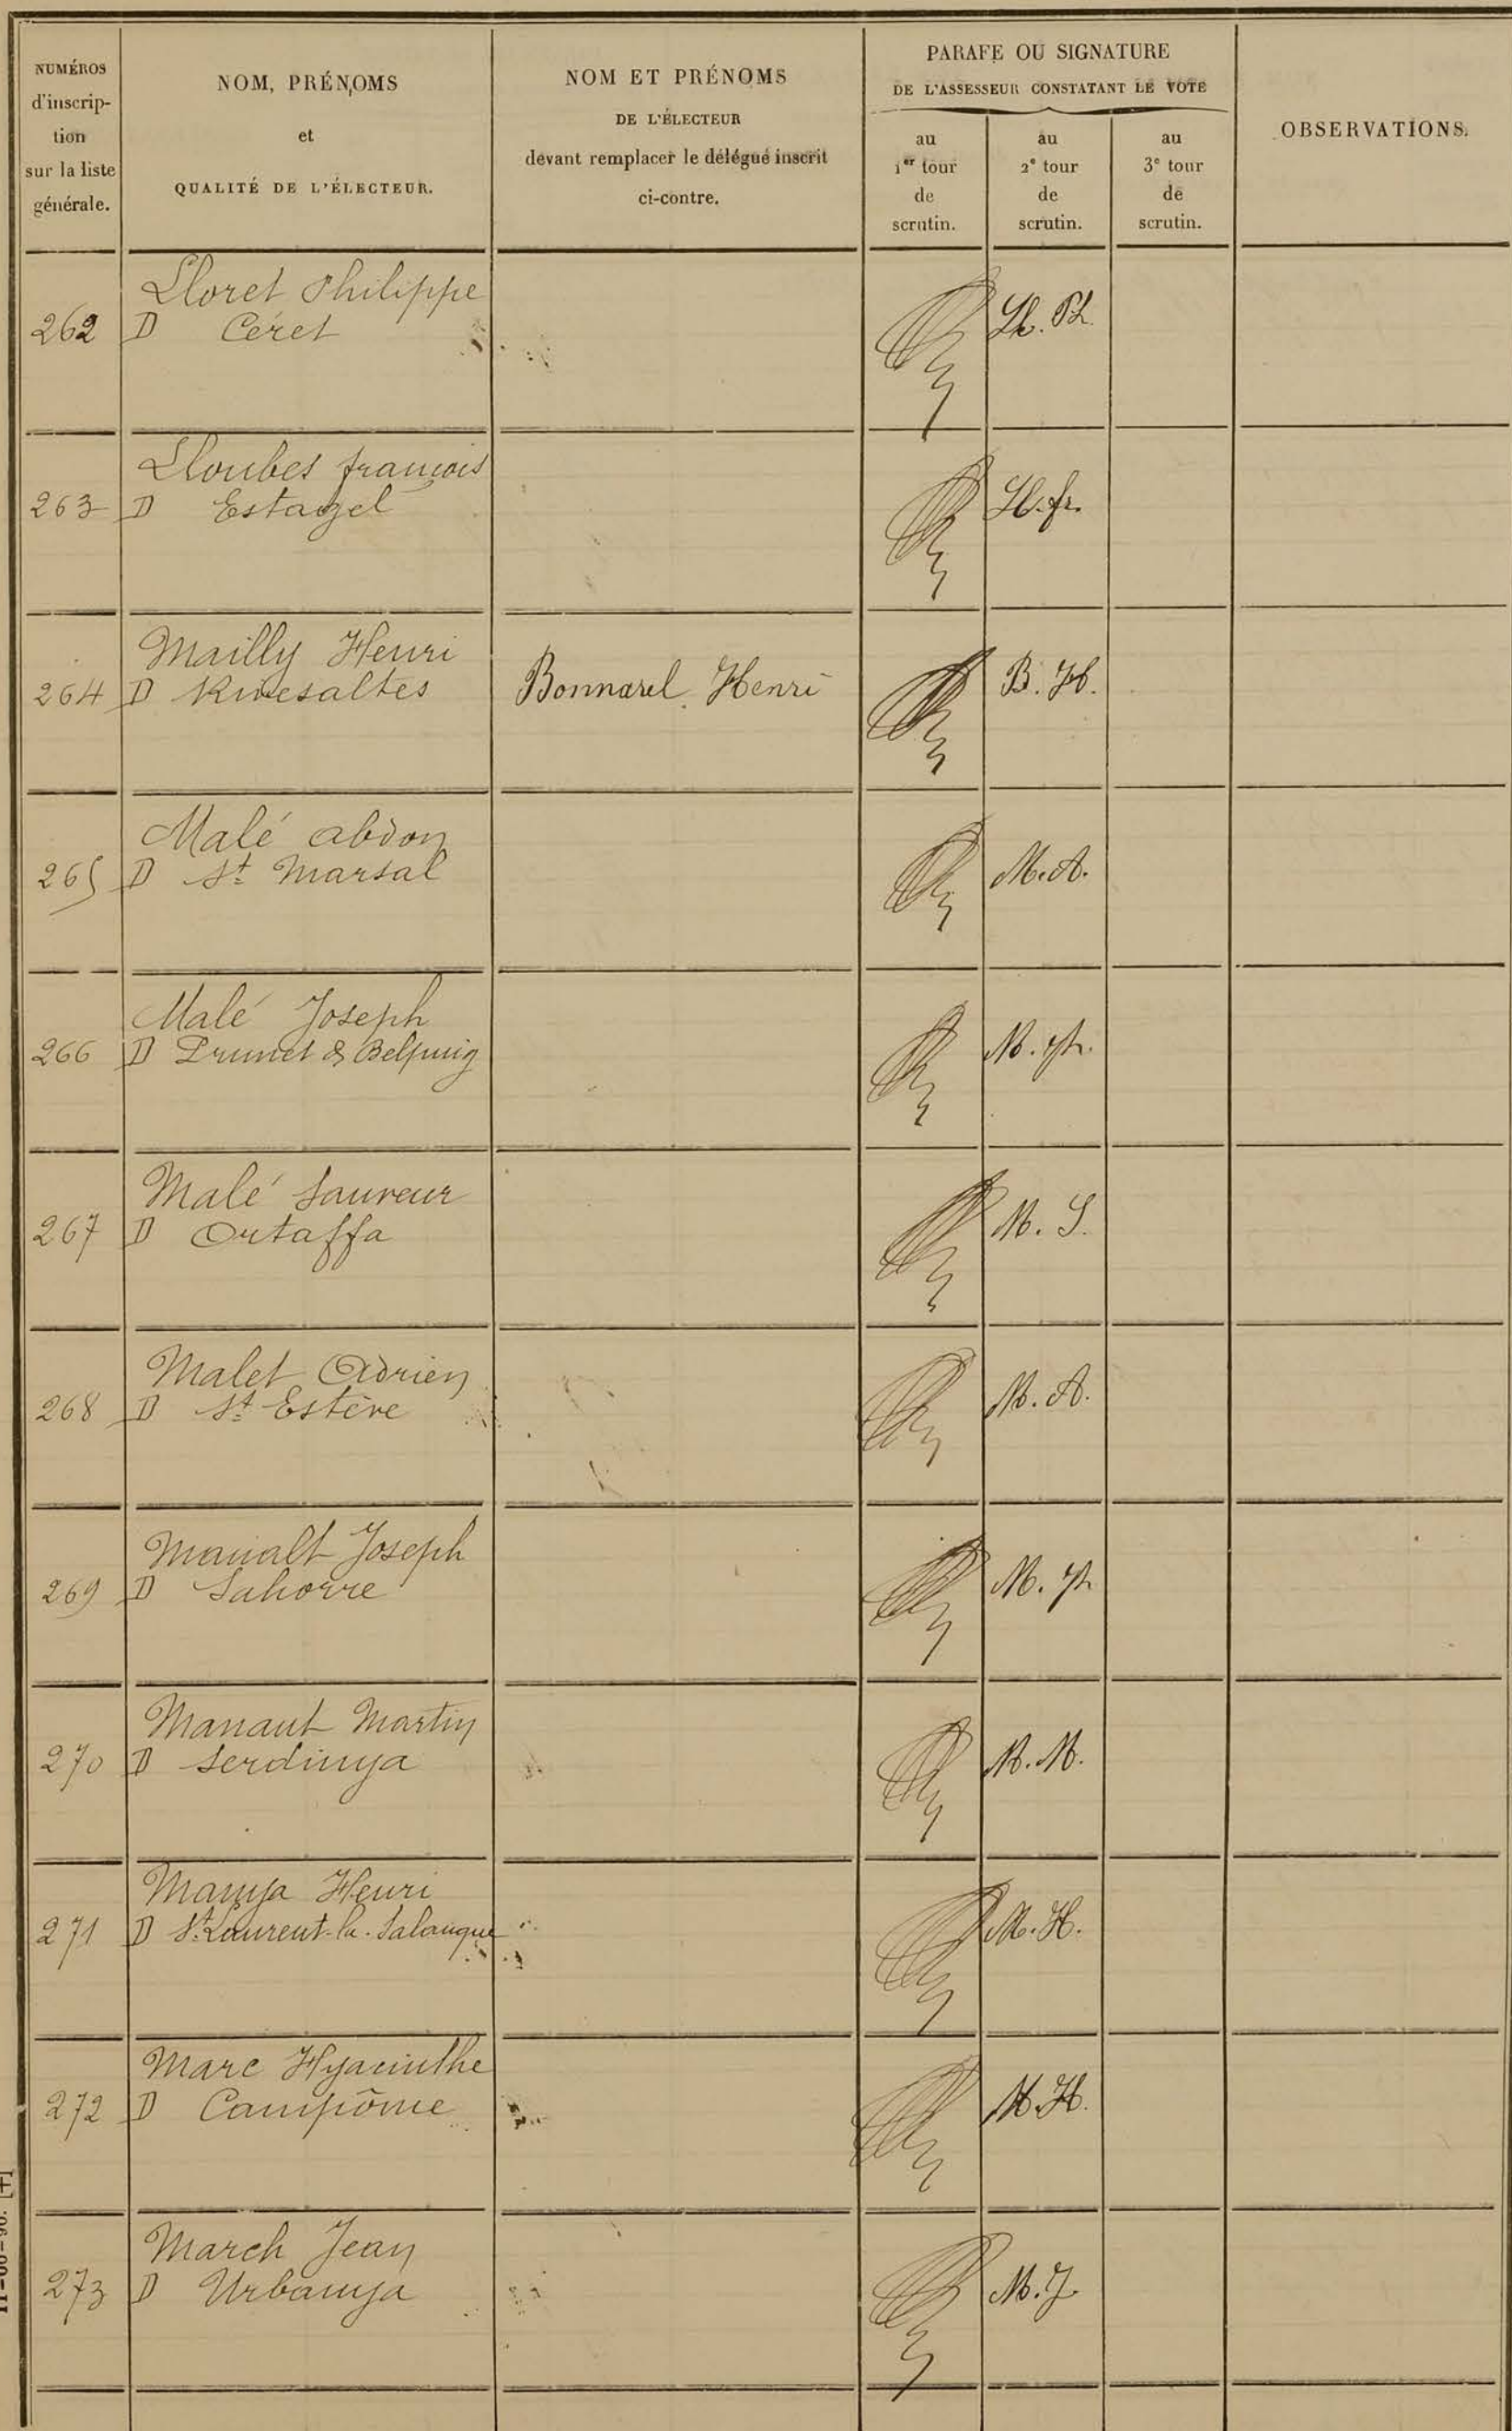 NUMÉROS
d'inscrip-
tion
sur la liste
générale.
NOM, PRÉNOMS
et
QUALITÉ DE L'ÉLECTEUR.
NOM ET PRÉNOMS
DE L'ÉLECTEUR
devant remplacer le délégué inscrit
ci-contre.
PARAFE OU SIGNATURE
DE L'ASSESSEUR CONSTATANT LE VOTE
au
1er tour
de
scrutin.
au
2e tour
de
scrutin.
au
3e tour
de
scrutin.
OBSERVATIONS.
Lloret Philippe
262 D Céret Ll. Ph.
Lloubes françois
263 D Estagel Ll. fr.
Mailly Henri
264 D Rivesaltes Bonnarel Henri B. H.
Malé abdon
265 D St Marsal M. A.
Malé Joseph
266 D Prunet & Belpuig M. Jh.
Malé Sauveur
267 D Ortaffa M. S.
Malet Adrien
268 D St Estève M. A.
Manalt Joseph
269 D Sahorre M. Jh
Manaut Martin
270 D Serdinya M. M.
Manya Henri
271 D St Laurent-la-Salanque M. H.
Marc Hyacinthe
272 D Campôme M. H.
March Jean
273 D Urbanya M. J.